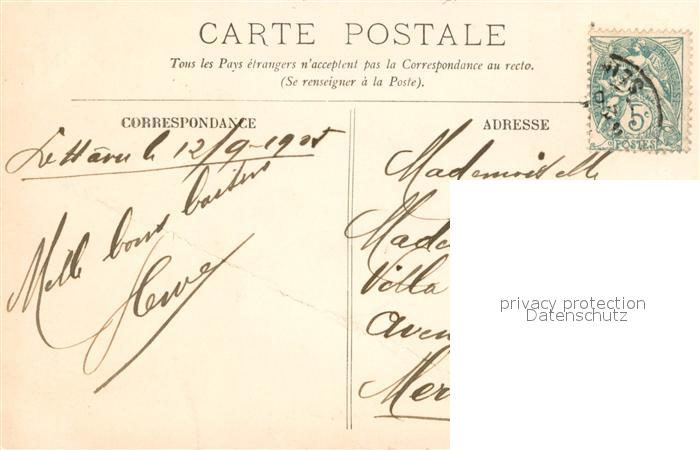 CARTE POSTALE
Tous les Pays étrangers n'acceptent pas la Correspondance au recto.
(Se renseigner à la Poste).
CORRESPONDANCE
Le Havre le 12/9-1905
Mille bons baisers
ADRESSE
Mademoiselle
Made
Villa
Aven
Mer
5c
POSTES
privacy protection
Datenschutz